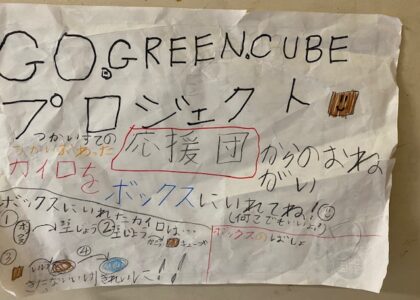 GO.GREEN.CUBE
プロジェクト
つかいすての
つかいおわった
応援団
からのおねがい
カイロを
ボックスにいれてね!
(何こでもいいよ!)
ボックスにいれたカイロは…
ボックスのばしょ
①
②
キューブ
③
④
きたないいけ
きれいに!!